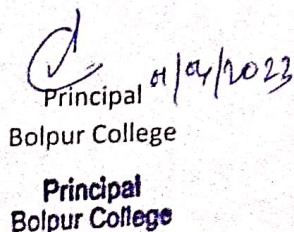 Principal
Bolpur College
Principal
Bolpur College